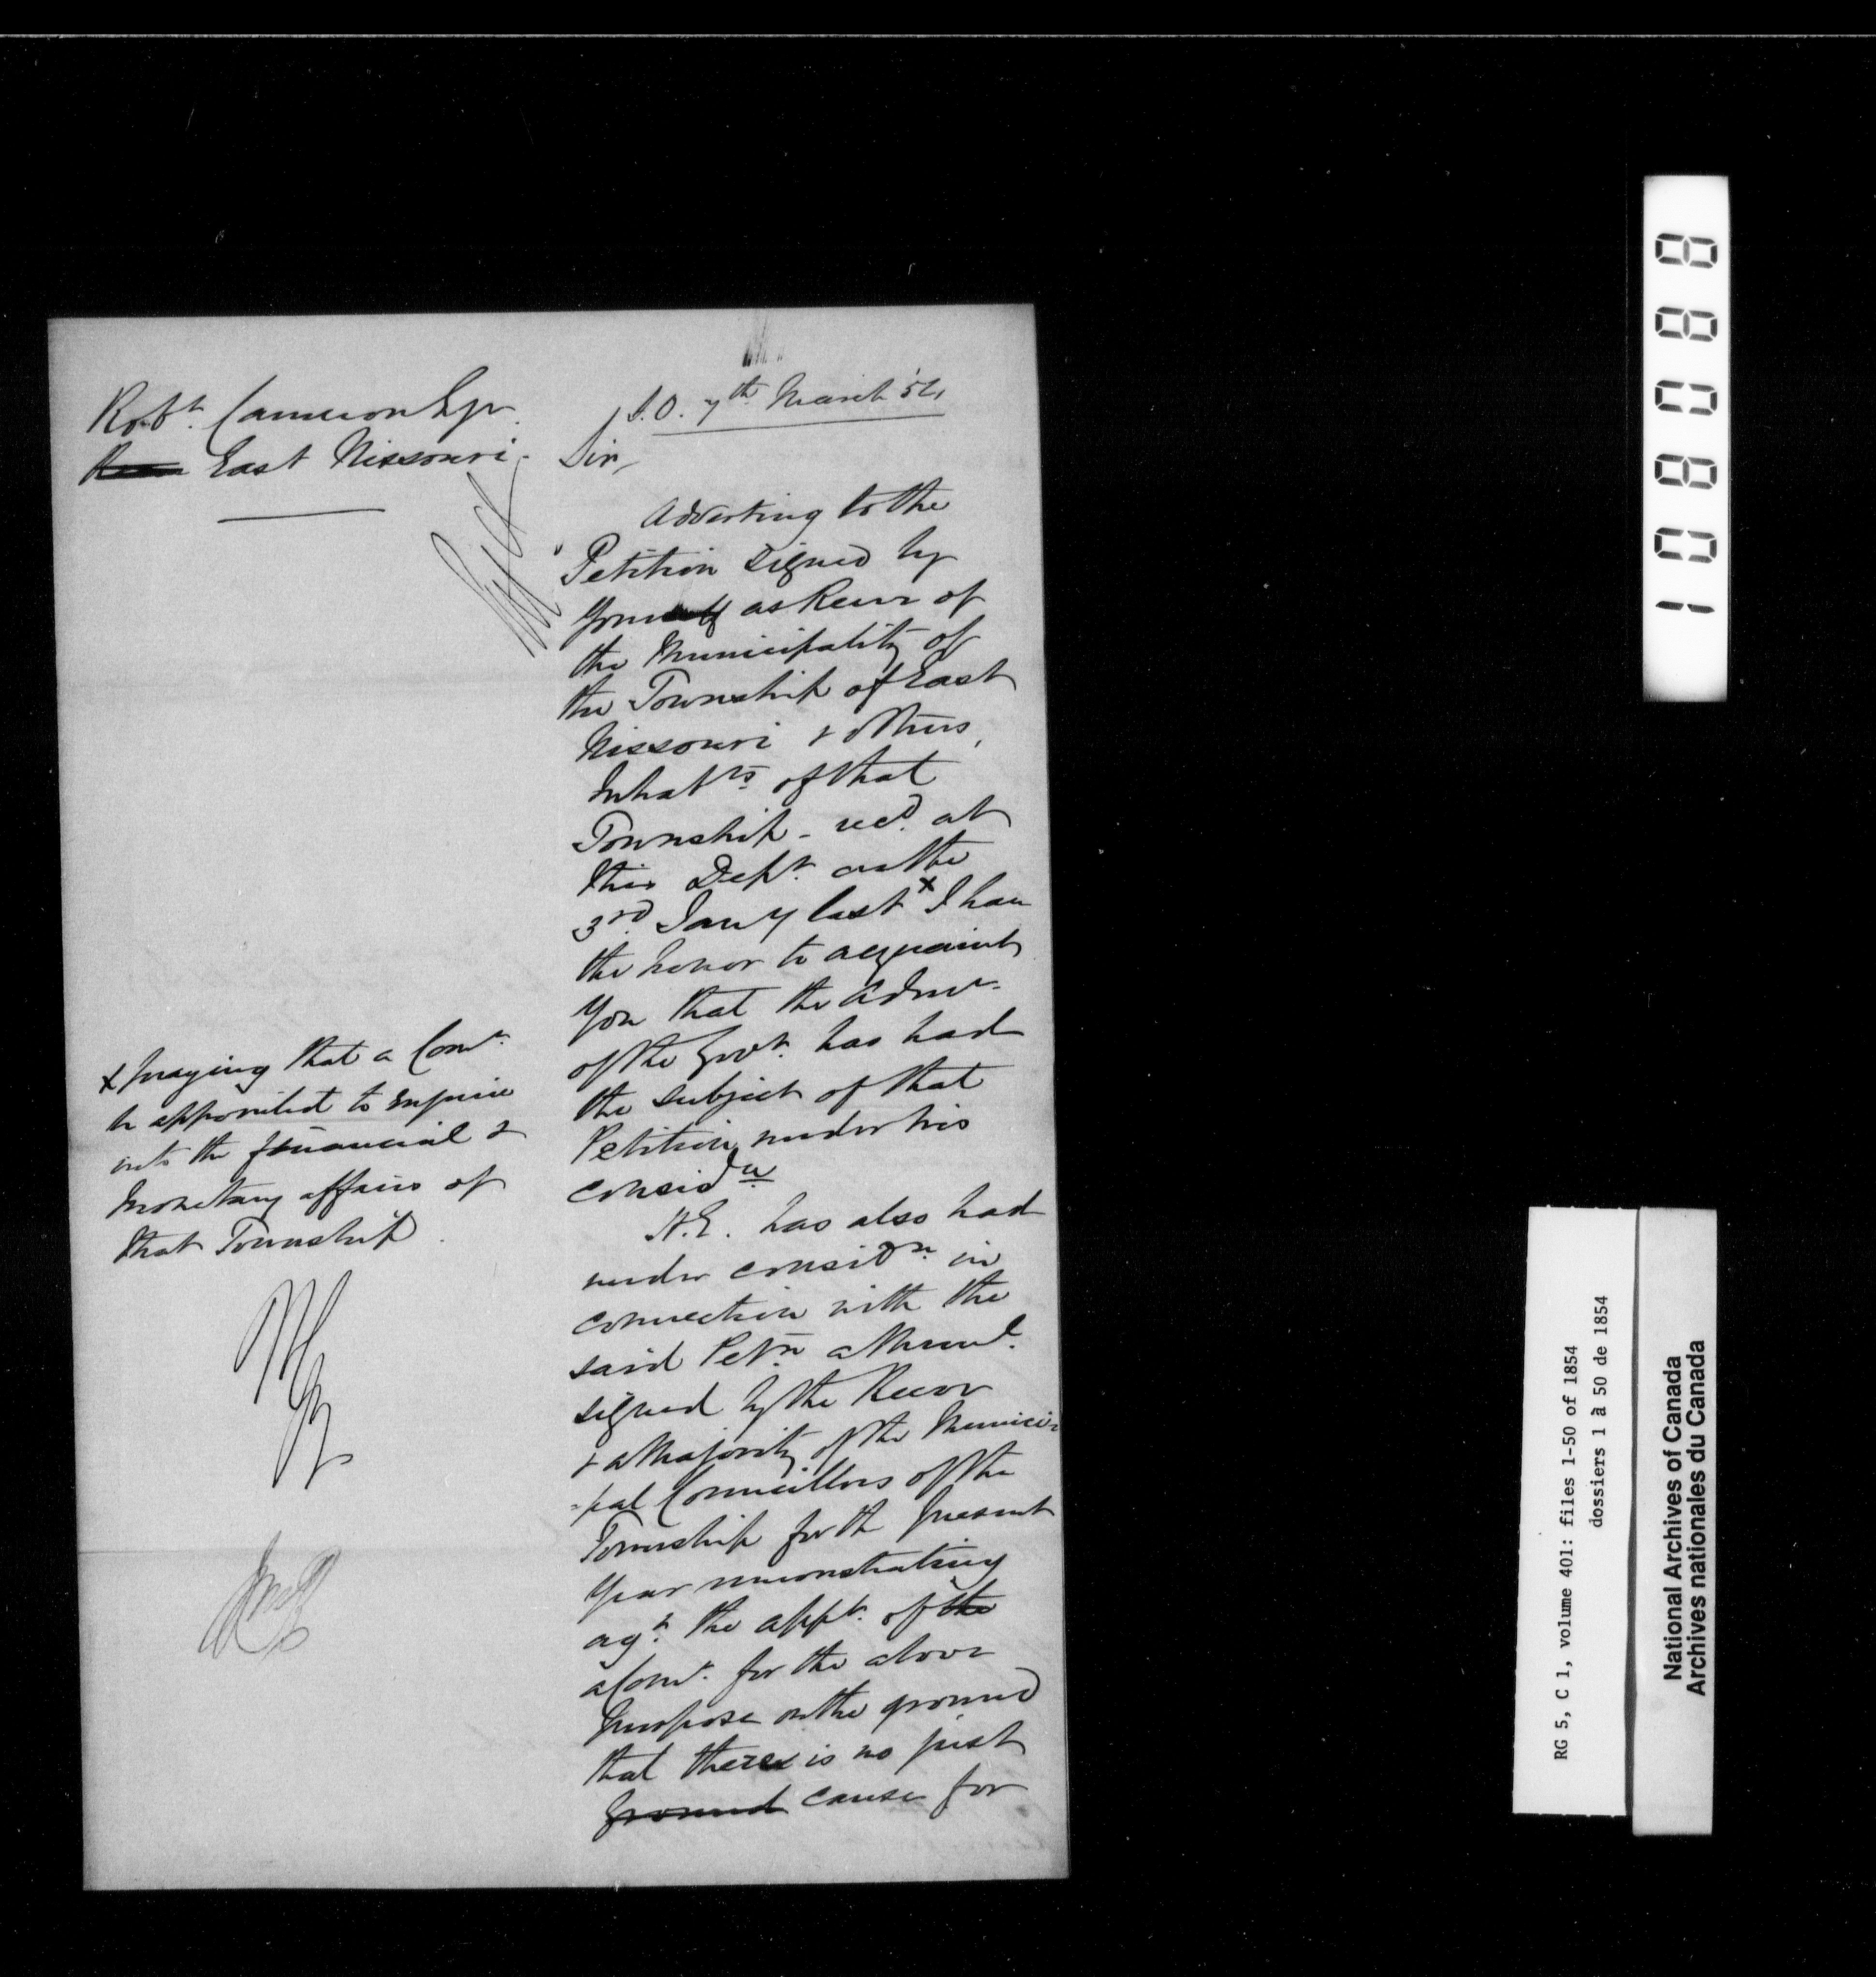 Robt. Cameron Esqr.
East Nissouri.
S.O. 7th March '54
Sir,
Adverting to the
Petition signed by
you as Reeve of
the Municipality of
the Township of East
Nissouri & others,
Inhabts. of that
Township - recd. at
this Dept. on the
3rd Jany last x I have
the honor to acquaint
you that the Admr.
of the Govt. has had
the subject of that
Petition under his
considn
H.E. has also had
under considn. in
connection with the
said Petn. a Meml.
signed by the Reeve
& a Majority of the Munici-
-pal Councillors of the
Township for the present
year remonstrating
agt. the appt. of the
a Comr. for the above
purpose on the ground
that there is no just
ground cause for
x praying that a Comr.
be appointed to enquire
into the financial &
monetary affairs of
that Township.
108088
RG 5, C 1, volume 401: files 1-50 of 1854
dossiers 1 à 50 de 1854
National Archives of Canada
Archives nationales du Canada